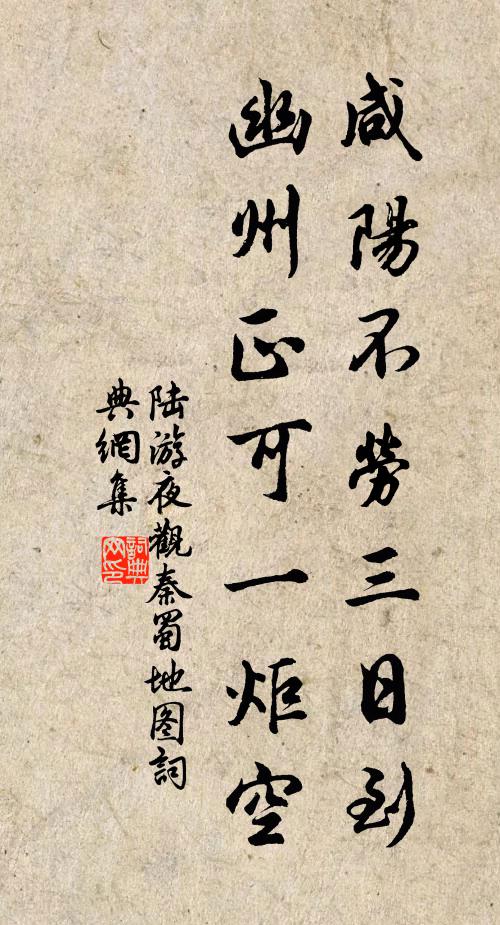 咸陽不勞三日到
幽州正可一炬空
陆游夜觀秦蜀地图詞
典網集
詞典
网印